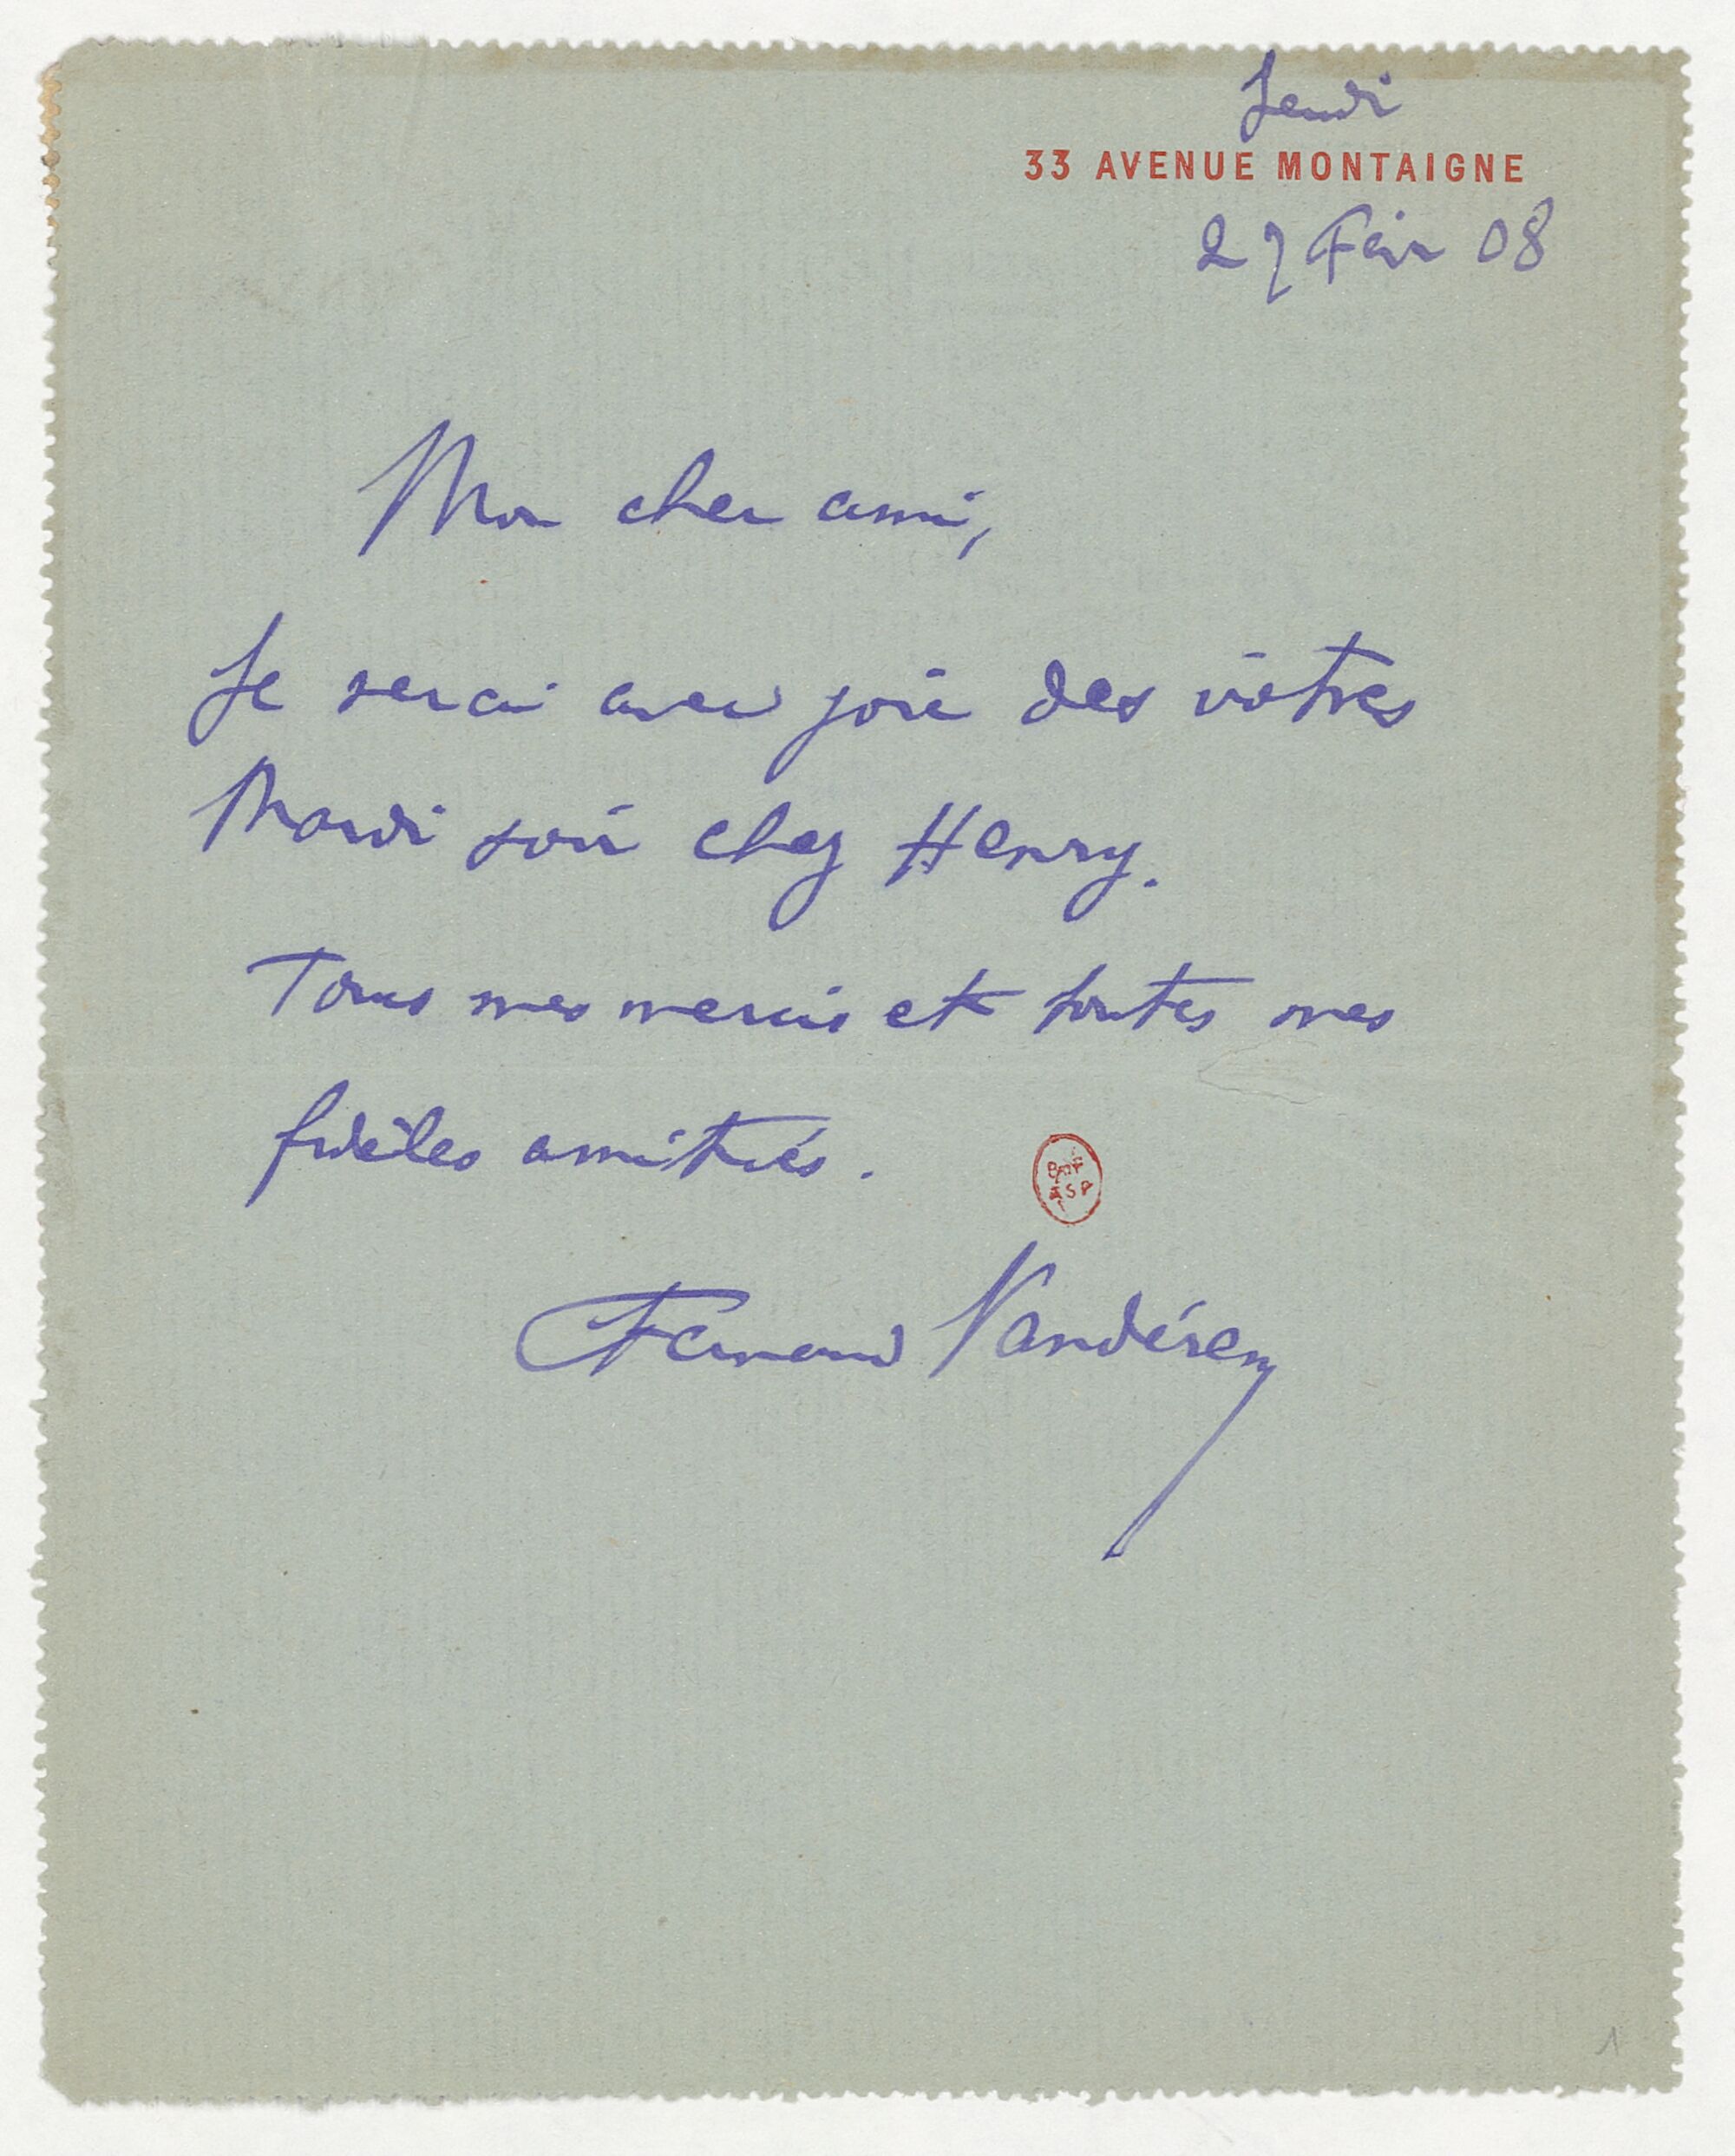 Jeudi
33 AVENUE MONTAIGNE
27 Fév 08
Mon cher ami,
Je serai avec joie des vôtres
Mardi soir chez Henry.
Tous mes mercis et toutes mes
fidèles amitiés.
BnF
ASP
Fernand Vandérem
1